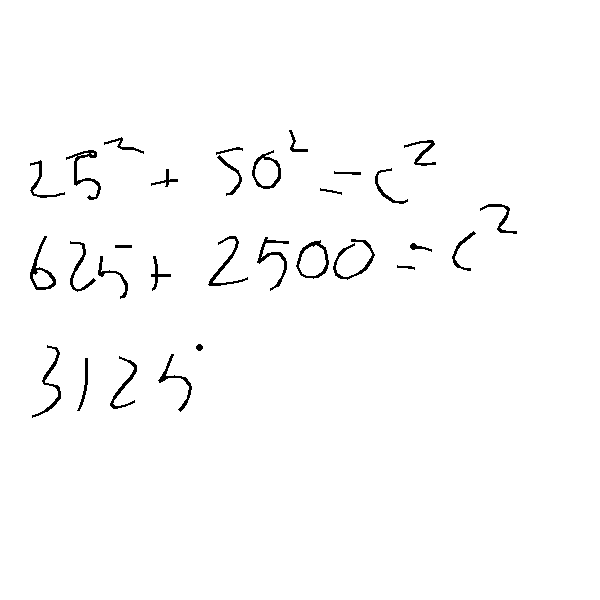 25² + 50² = c²
625 + 2500 = c²
3125